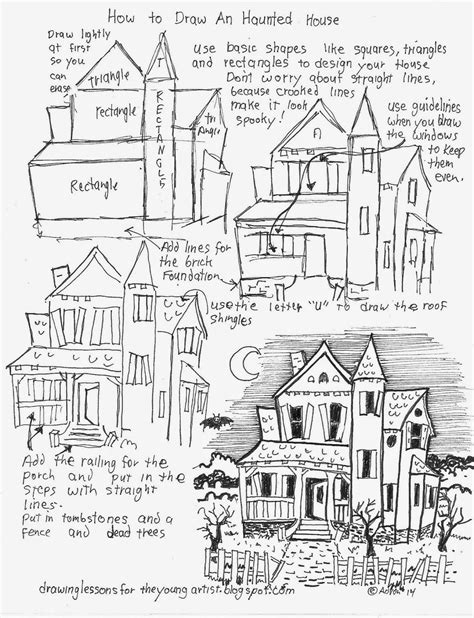 How to Draw An Haunted House
Draw lightly
at first
so you
can
erase
use basic shapes like squares, triangles
and rectangles to design your House
Don't worry about straight lines,
because crooked lines
make it look
spooky!
use guidelines
when you draw
the windows
to keep
them
even.
triangle
T
RECTANGLE
rectangle
tri
Angle
Rectangle
Add lines for
the brick
Foundation
use the letter "U" to draw the roof
shingles
Add the railing for the
porch and put in the
steps with straight
lines.
Put in tombstones and a
fence and dead trees
drawinglessonsfortheyoungartist.blogspot.com
14